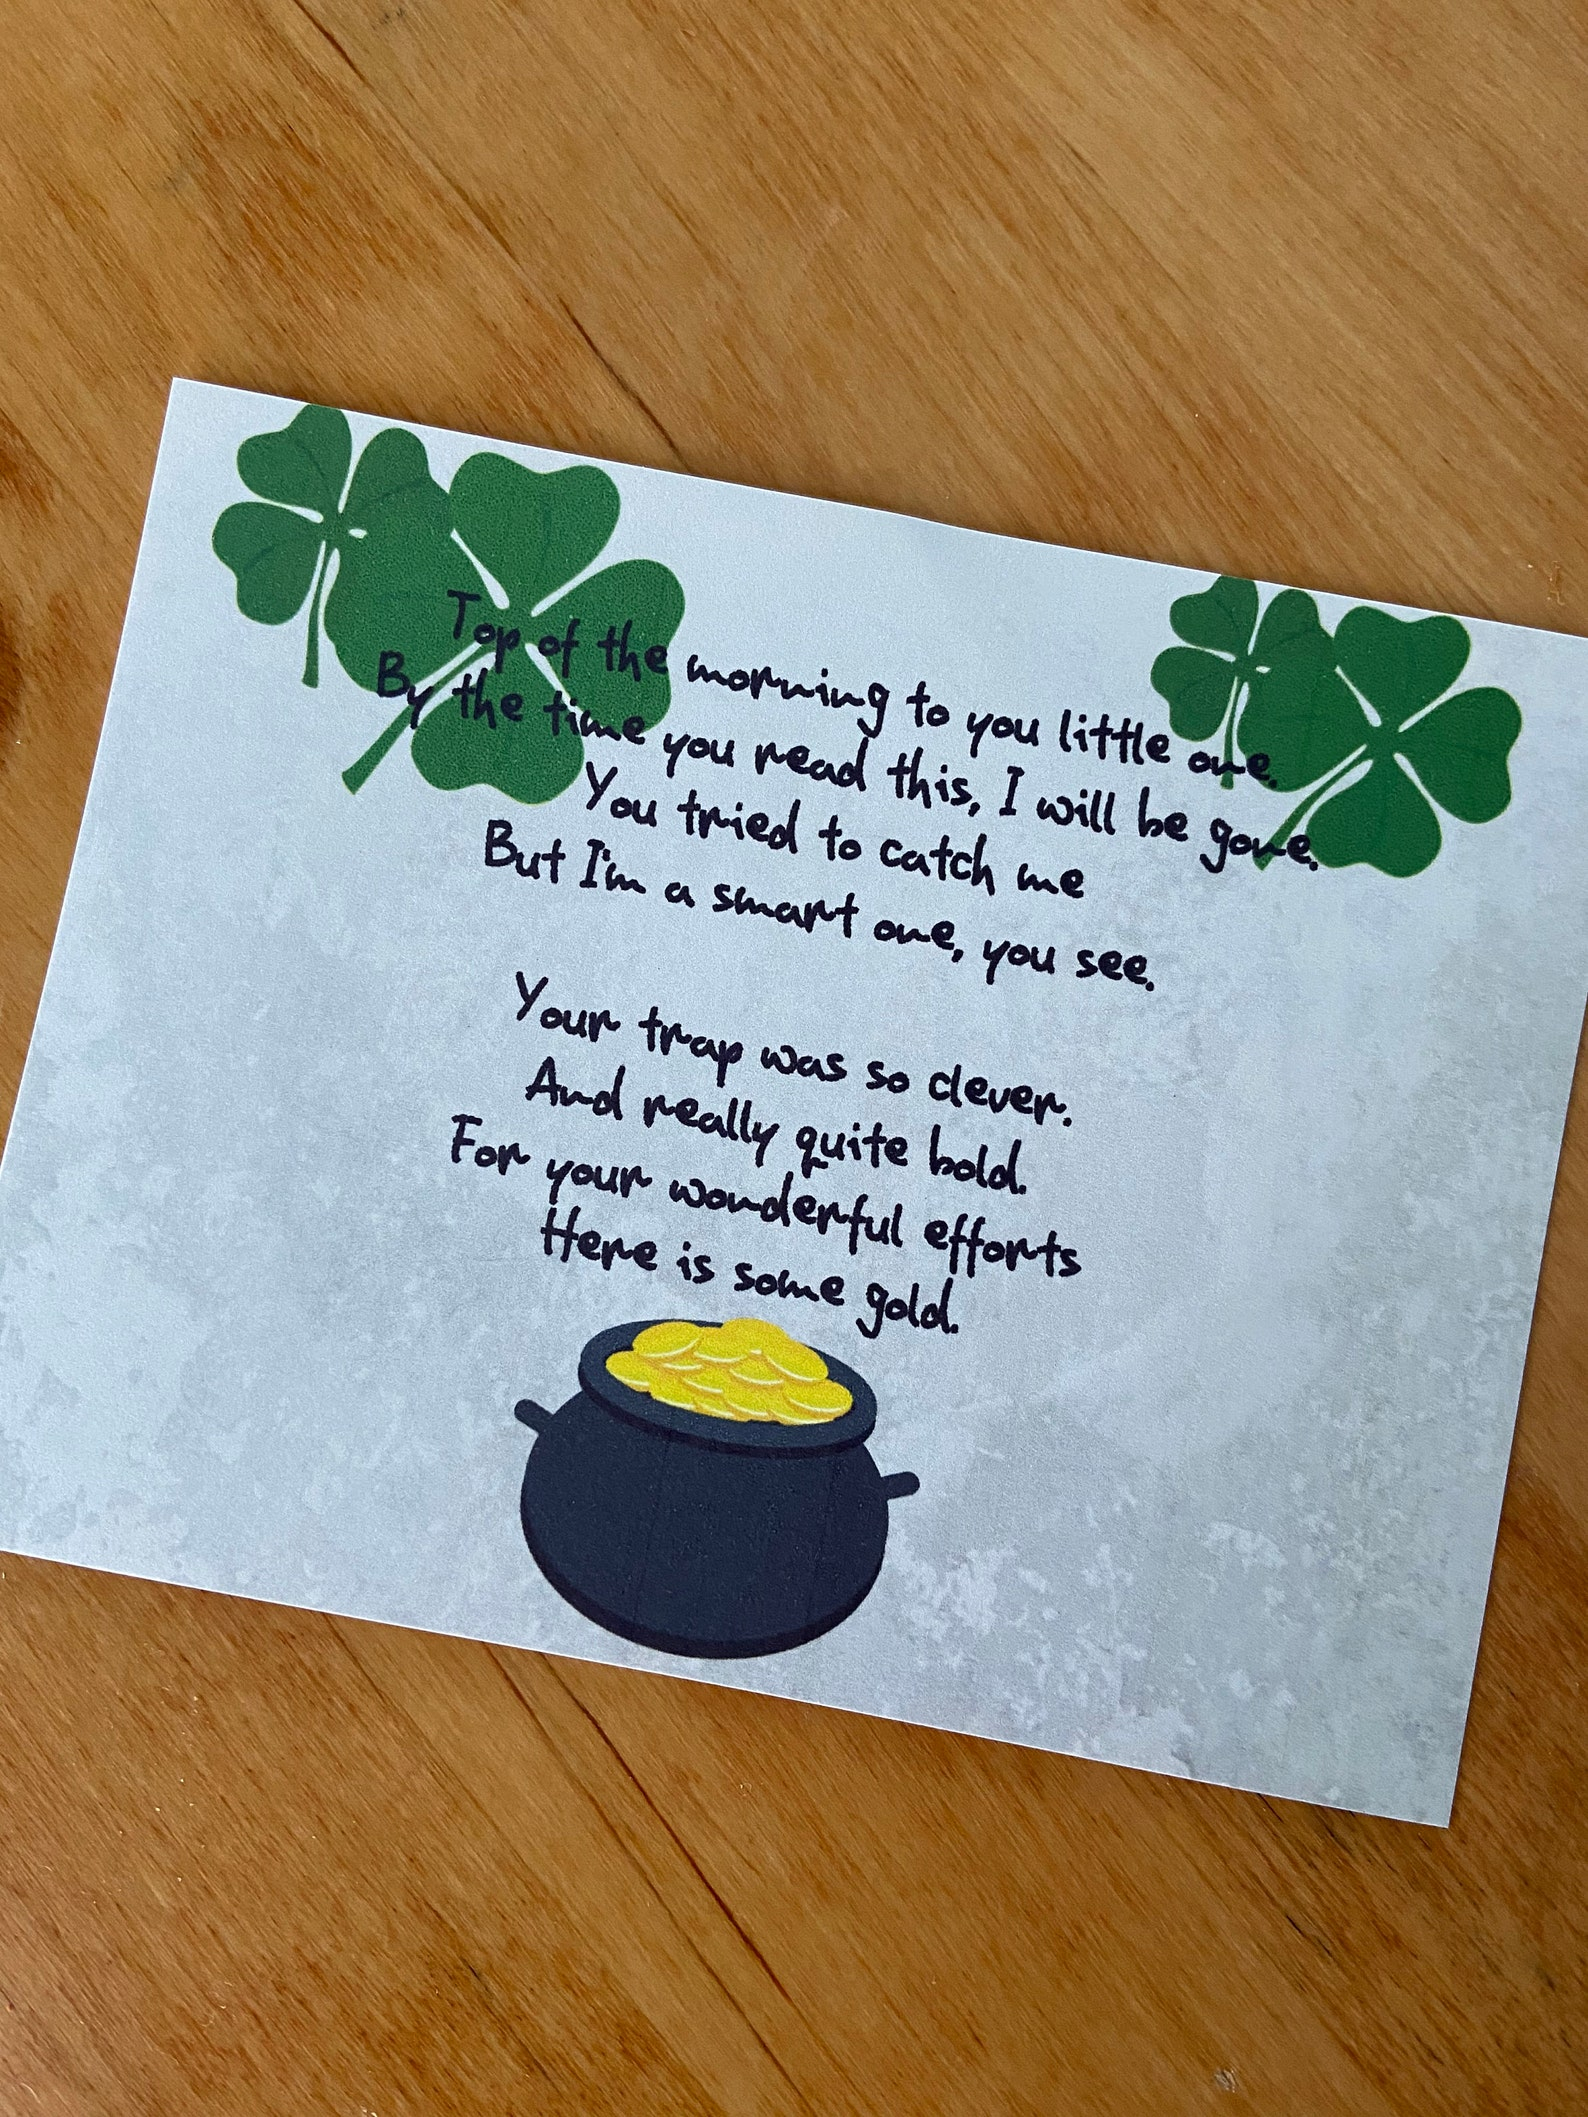 Top of the morning to you little one.
By the time you read this, I will be gone.
You tried to catch me
But I'm a smart one, you see.
Your trap was so clever.
And really quite bold.
For your wonderful efforts
Here is some gold.